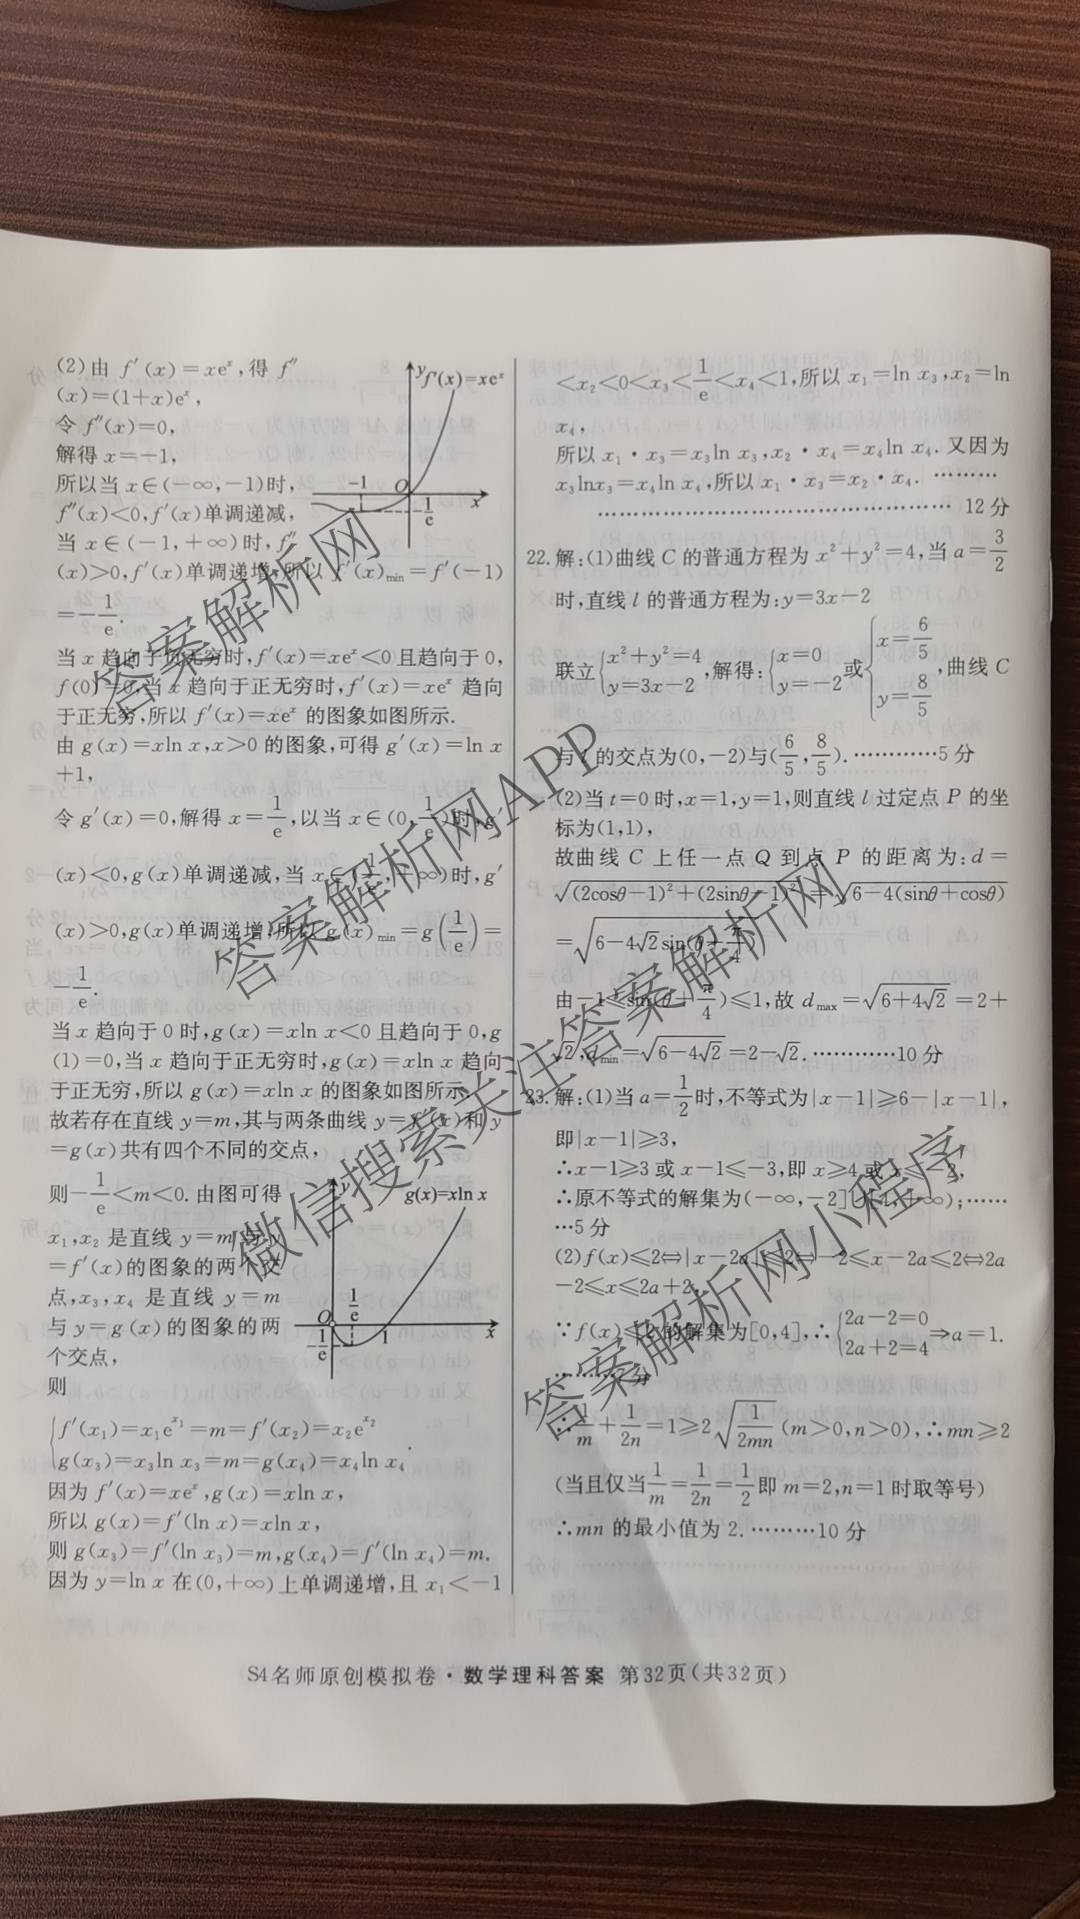 (2)由 f′(x)=xeˣ,得 f″
(x)=(1+x)eˣ,
令 f″(x)=0,
解得 x=-1,
所以当 x∈(-∞,-1)时,
f″(x)<0,f′(x)单调递减,
当 x∈(-1,+∞)时,f″
(x)>0,f′(x)单调递增,所以 f′(x)min=f′(-1)
=-1/e.
当 x 趋向于负无穷时,f′(x)=xeˣ<0且趋向于0,
f(0)=0,当 x 趋向于正无穷时,f′(x)=xeˣ 趋向
于正无穷,所以 f′(x)=xeˣ 的图象如图所示.
由 g(x)=xln x,x>0 的图象,可得 g′(x)=ln x
+1,
令 g′(x)=0,解得 x=1/e,以当 x∈(0,1/e)时,g′
(x)<0,g(x)单调递减,当 x∈(,+∞)时,g′
(x)>0,g(x)单调递增,所以 g(x)min=g(1/e)=
-1/e.
当 x 趋向于 0 时,g(x)=xln x<0 且趋向于 0,g
(1)=0,当 x 趋向于正无穷时,g(x)=xln x 趋向
于正无穷,所以 g(x)=xln x 的图象如图所示
故若存在直线 y=m,其与两条曲线 y=f′(x)和 y
=g(x)共有四个不同的交点,
则-1/e<m<0.由图可得
x₁,x₂ 是直线 y=m 与 y
=f′(x)的图象的两个交
点,x₃,x₄ 是直线 y=m
与 y=g(x)的图象的两
个交点,
则
{f′(x₁)=x₁e^x₁=m=f′(x₂)=x₂e^x₂
g(x₃)=x₃ln x₃=m=g(x₄)=x₄ln x₄.
因为 f′(x)=xeˣ,g(x)=xln x,
所以 g(x)=f′(ln x)=xln x,
则 g(x₃)=f′(ln x₃)=m,g(x₄)=f′(ln x₄)=m.
因为 y=ln x 在(0,+∞)上单调递增,且 x₁<-1
y
f′(x)=xeˣ
-1
O
-1/e
x
y
g(x)=xln x
1/e
O
-1/e
1
x
<x₂<0<x₃<1/e<x₄<1,所以 x₁=ln x₃,x₂=ln
x₄,
所以 x₁·x₃=x₃ln x₃,x₂·x₄=x₄ln x₄.又因为
x₃lnx₃=x₄ln x₄,所以 x₁·x₃=x₂·x₄. ………
……………………………………… 12 分
22.解:(1)曲线 C 的普通方程为 x²+y²=4,当 a=3/2
时,直线 l 的普通方程为:y=3x-2
联立{x²+y²=4 y=3x-2,解得:{x=0 y=-2或{x=6/5 y=8/5,曲线 C
与 l 的交点为(0,-2)与(6/5,8/5).…………5 分
(2)当 t=0 时,x=1,y=1,则直线 l 过定点 P 的坐
标为(1,1),
故曲线 C 上任一点 Q 到点 P 的距离为:d=
√(2cosθ-1)²+(2sinθ-1)²=√6-4(sinθ+cosθ)
=√6-4√2sin(θ+π/4)
由-1≤sin(θ+π/4)≤1,故 dmax=√6+4√2=2+
√2,dmin=√6-4√2=2-√2.…………10 分
23.解:(1)当 a=1/2时,不等式为|x-1|≥6-|x-1|,
即|x-1|≥3,
∴x-1≥3 或 x-1≤-3,即 x≥4 或 x≤-2,
∴原不等式的解集为(-∞,-2]∪[4,+∞);……
…5 分
(2)f(x)≤2⇔|x-2a|≤2⇔-2≤x-2a≤2⇔2a
-2≤x≤2a+2,
∵f(x)≤2的解集为[0,4],∴{2a-2=0 2a+2=4⇒a=1.
………分
∴1/m+1/2n=1≥2√1/2mn(m>0,n>0),∴mn≥2
(当且仅当1/m=1/2n=1/2即 m=2,n=1 时取等号)
∴mn 的最小值为 2.………10 分
S4名师原创模拟卷·数学理科答案 第32页(共32页)
答案解析网
答案解析网APP
微信搜索关注答案解析网
答案解析网小程序